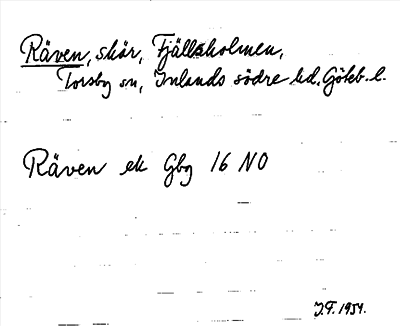 Räven, skär, Fjällsholmen,
Torsby sn, Inlands södre hd, Göteb. l.
Räven ek Gbg 16 NO
J.F. 1954.